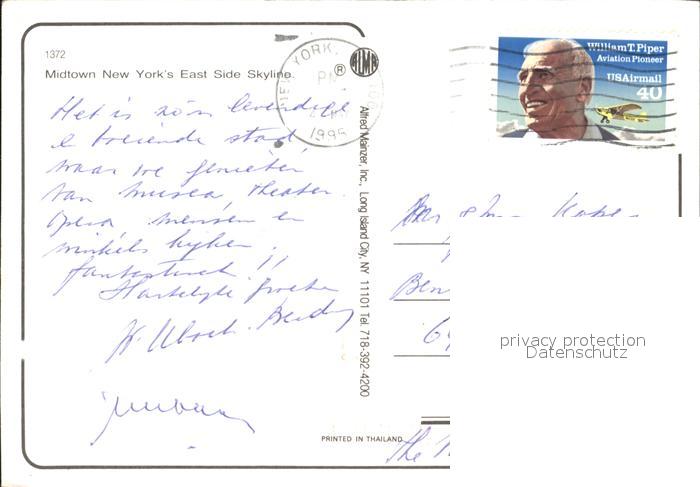 1372
Midtown New York's East Side Skyline
NEW YORK, NY
PM
1995
ALMA
®
William T. Piper
Aviation Pioneer
USAirmail
40
Het is zo'n levendige
boeiende stad
waar we genieten
van musea, theater
opera, mensen en
winkels kijken.
fantastisch!!
Hartelijke groeten
Alfred Mainzer, Inc., Long Island City, NY 11101 Tel. 718-392-4200
Ben
privacy protection
Datenschutz
PRINTED IN THAILAND
the